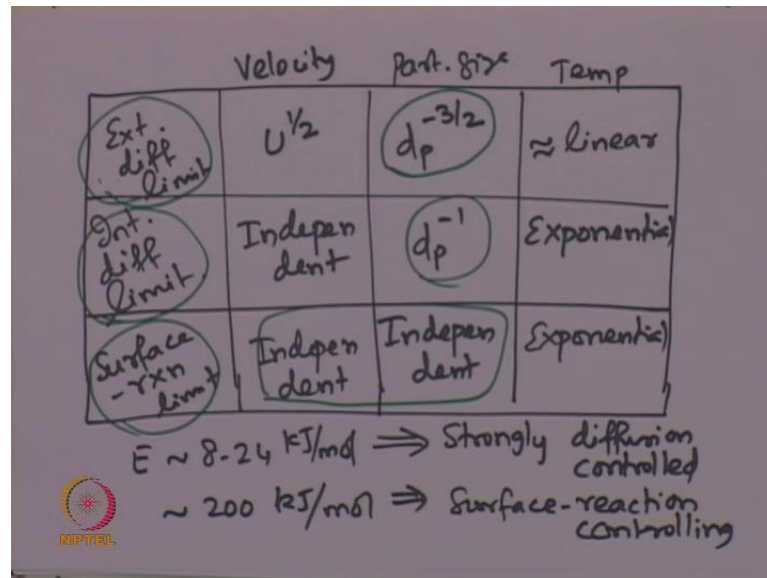 Velocity Part. Size Temp
Ext. diff limit U^1/2 dp^-3/2 ≈ linear
Int. diff limit Indepen dent dp^-1 Exponential
Surface -rxn limit Indepen dent Indepen dent Exponential
E ~ 8-24 kJ/mol ⟹ Strongly diffusion
controlled
~ 200 kJ/mol ⟹ Surface-reaction
controlling
NPTEL